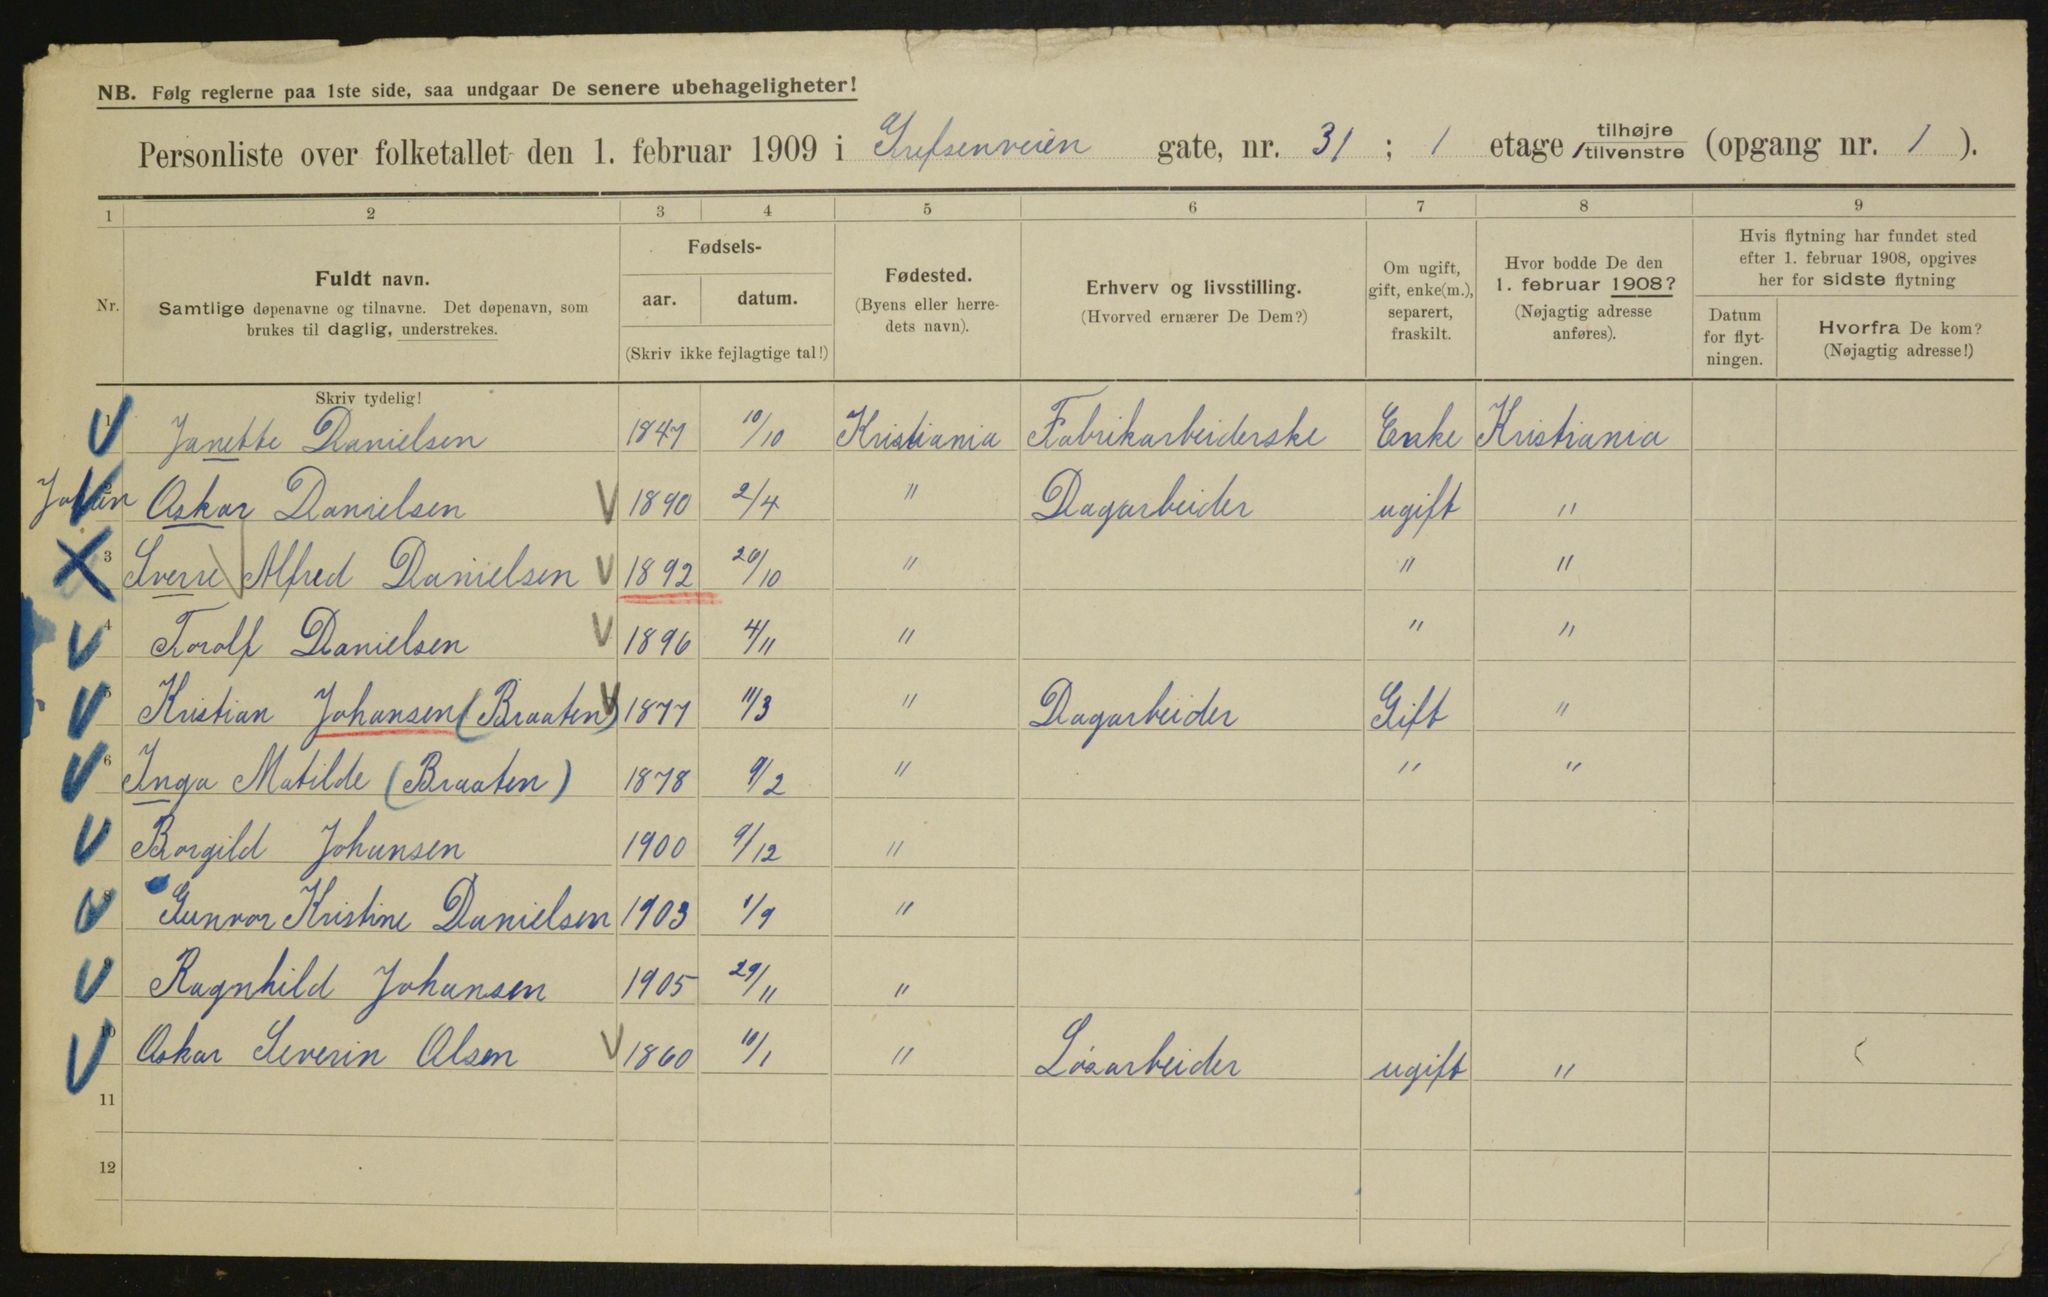 NB. Følg reglerne paa 1ste side, saa undgaar De senere ubehageligheter!
Personliste over folketallet den 1. februar 1909 i Grefsenveien gate, nr. 31; 1 etage tilhøjre / tilvenstre (opgang nr. 1).
1 2 3 4 5 6 7 8 9
Nr.
Fuldt navn.
Samtlige døpenavne og tilnavne. Det døpenavn, som
brukes til daglig, understrekes.
Fødsels-
aar. datum.
(Skriv ikke fejlagtige tal!)
Fødested.
(Byens eller herre-
dets navn).
Erhverv og livsstilling.
(Hvorved ernærer De Dem?)
Om ugift,
gift, enke(m.),
separert,
fraskilt.
Hvor bodde De den
1. februar 1908?
(Nøjagtig adresse
anføres).
Hvis flytning har fundet sted
efter 1. februar 1908, opgives
her for sidste flytning
Datum
for flyt-
ningen.
Hvorfra De kom?
(Nøjagtig adresse!)
Skriv tydelig!
1 Janette Danielsen 1847 10/10 Kristiania Fabrikarbeiderske Enke Kristiania
Johan Oskar Danielsen 1890 2/4 " Dagarbeider ugift "
3 Sverre Alfred Danielsen 1892 20/10 " " "
4 Torolf Danielsen 1896 4/11 " " "
5 Kristian Johansen (Braaten) 1877 11/3 " Dagarbeider Gift "
6 Inga Matilde (Braaten) 1878 9/2 " " "
Borgild Johansen 1900 9/12 "
8 Gunvor Kristine Danielsen 1903 1/9 "
9 Ragnhild Johansen 1905 29/11 "
10 Oskar Severin Olsen 1860 10/1 " Løsarbeider ugift "
11
12